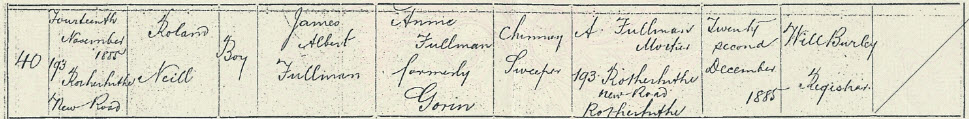 40
Fourteenth
November
1885
193
Rotherhithe
New Road
Roland
Neill
Boy
James
Albert
Fullman
Annie
Fullman
formerly
Gorin
Chimney
Sweeper
A. Fullman
Mother
193 Rotherhithe
New Road
Rotherhithe
Twenty
second
December
1885
Will Burley
Registrar